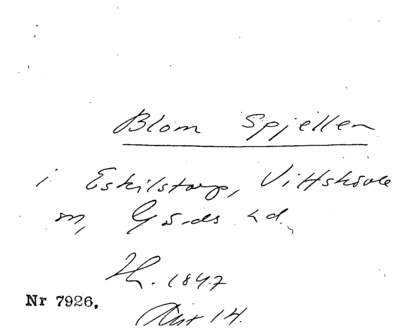 Blom Spjellen
i Eskilstorp, Vittskövle
sn, Gärds hd.
1847
Nr 7926.
14.